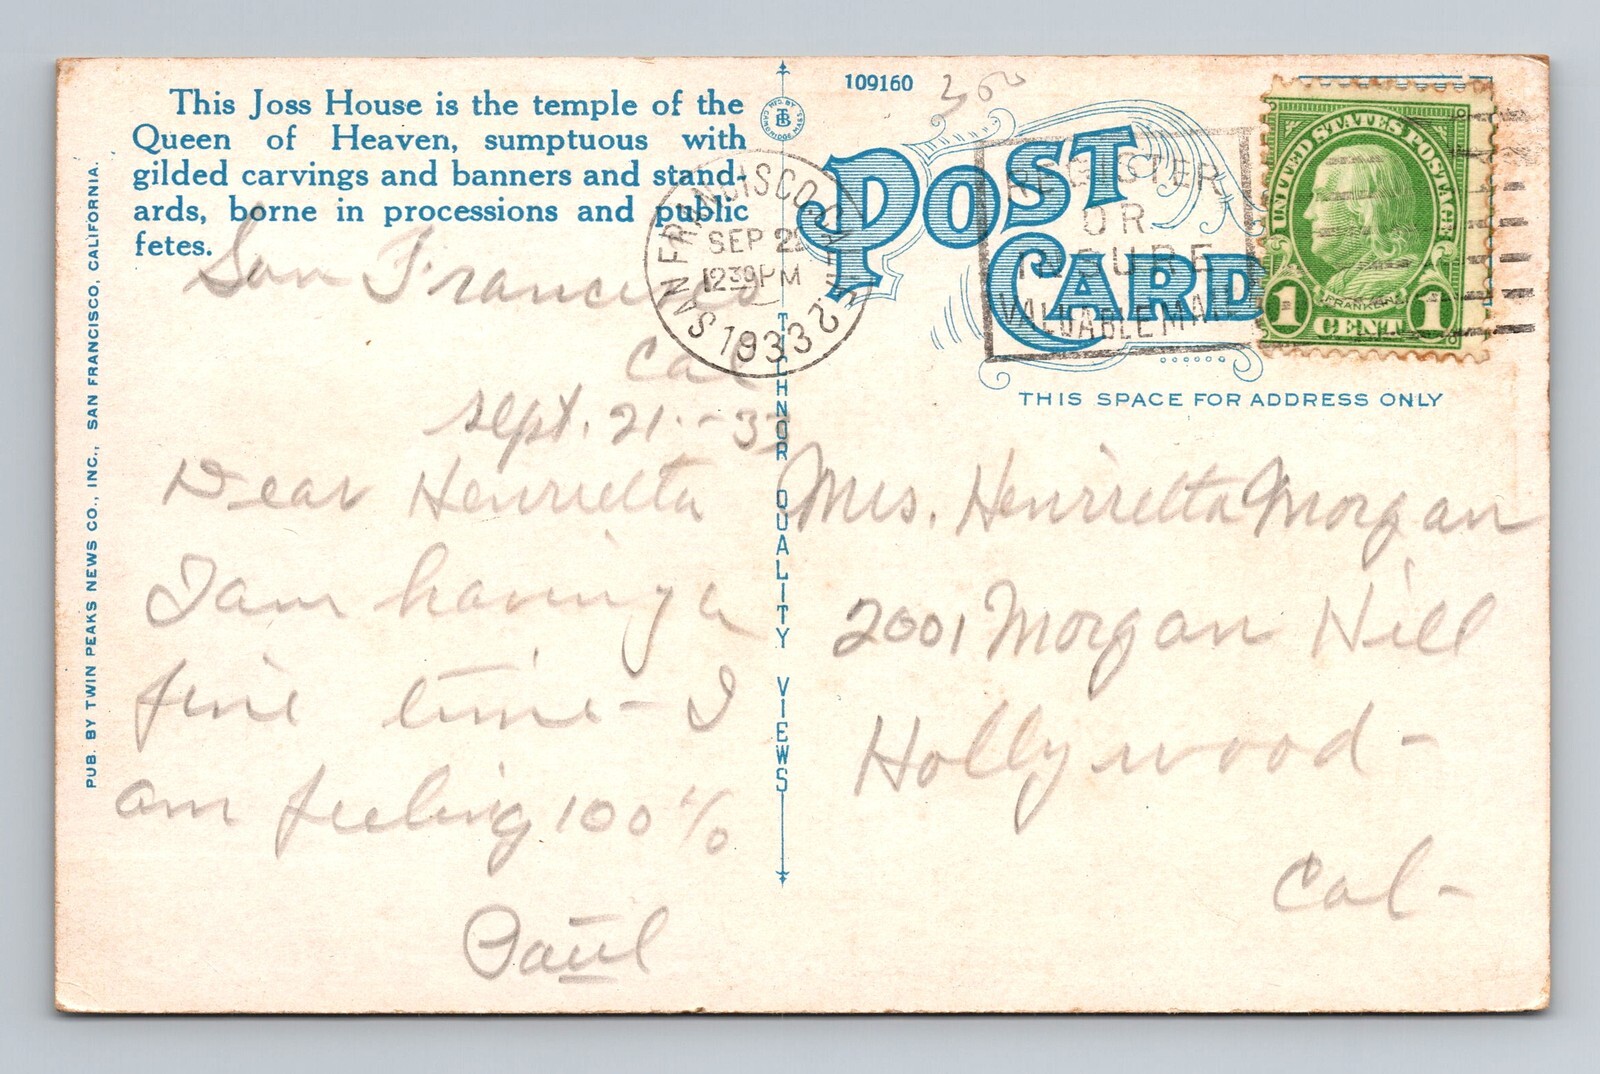 This Joss House is the temple of the
Queen of Heaven, sumptuous with
gilded carvings and banners and stand-
ards, borne in processions and public
fetes.
San Francisco
Cal
Sept. 21.-33
Dear Henrietta
I am having a
fine time - I
am feeling 100%
Paul
PUB. BY TWIN PEAKS NEWS CO., INC., SAN FRANCISCO, CALIFORNIA.
MFD. BY
TB
CAMBRIDGE, MASS.
TICHNOR QUALITY VIEWS
109160
300
POST
CARD
SAN FRANCISCO, CALIF.
SEP 22
1239 PM
1933
2
REGISTER
OR
INSURE
VALUABLE MAIL
UNITED STATES POSTAGE
FRANKLIN
1 CENT 1
THIS SPACE FOR ADDRESS ONLY
Mrs. Henrietta Morgan
2001 Morgan Hill
Hollywood -
Cal -